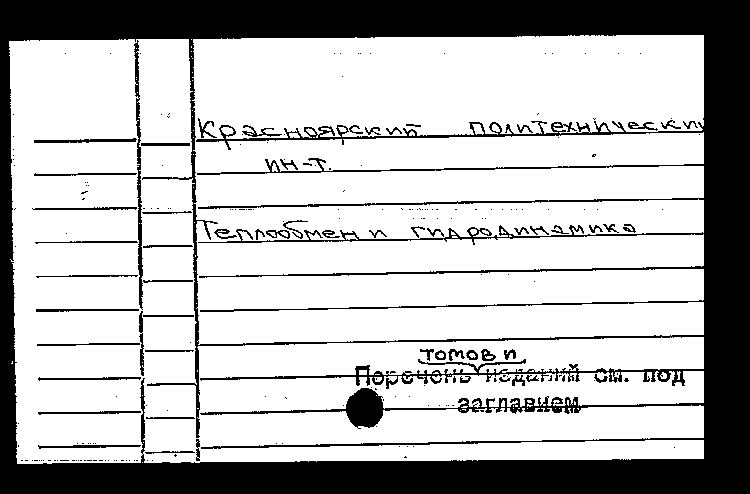 Красноярский политехнический
ин-т.
Теплообмен и гидродинамика
томов и
Перечень изданий см. под
заглавием